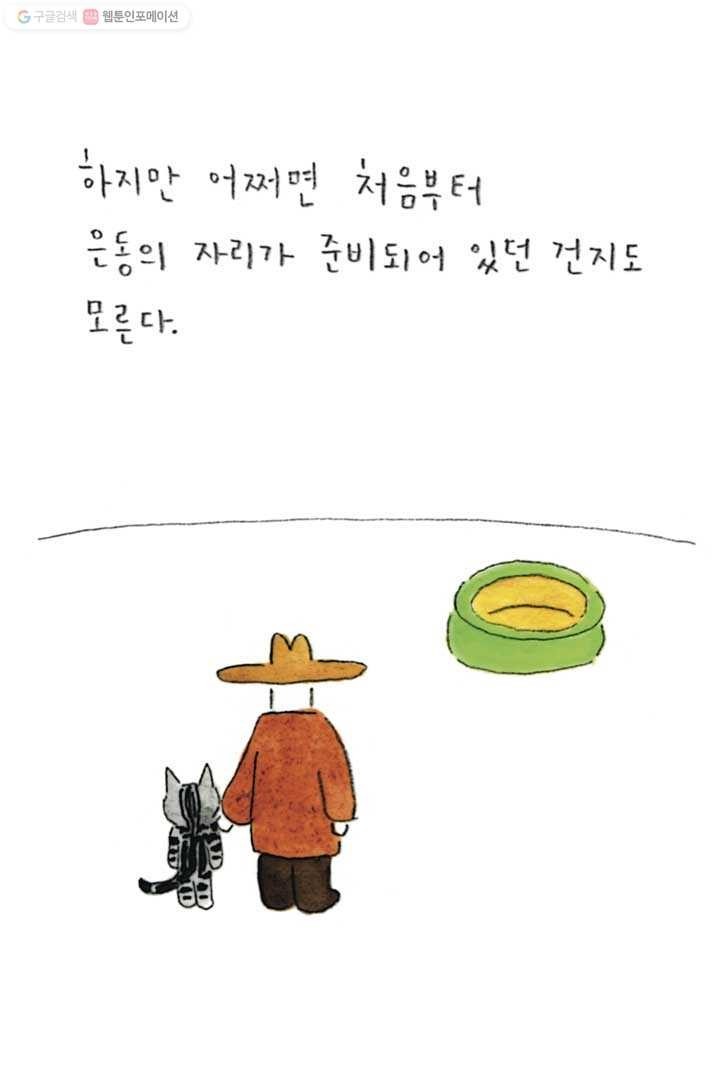 구글검색 웹툰인포메이션
하지만 어쩌면 처음부터
은동의 자리가 준비되어 있던 건지도
모른다.